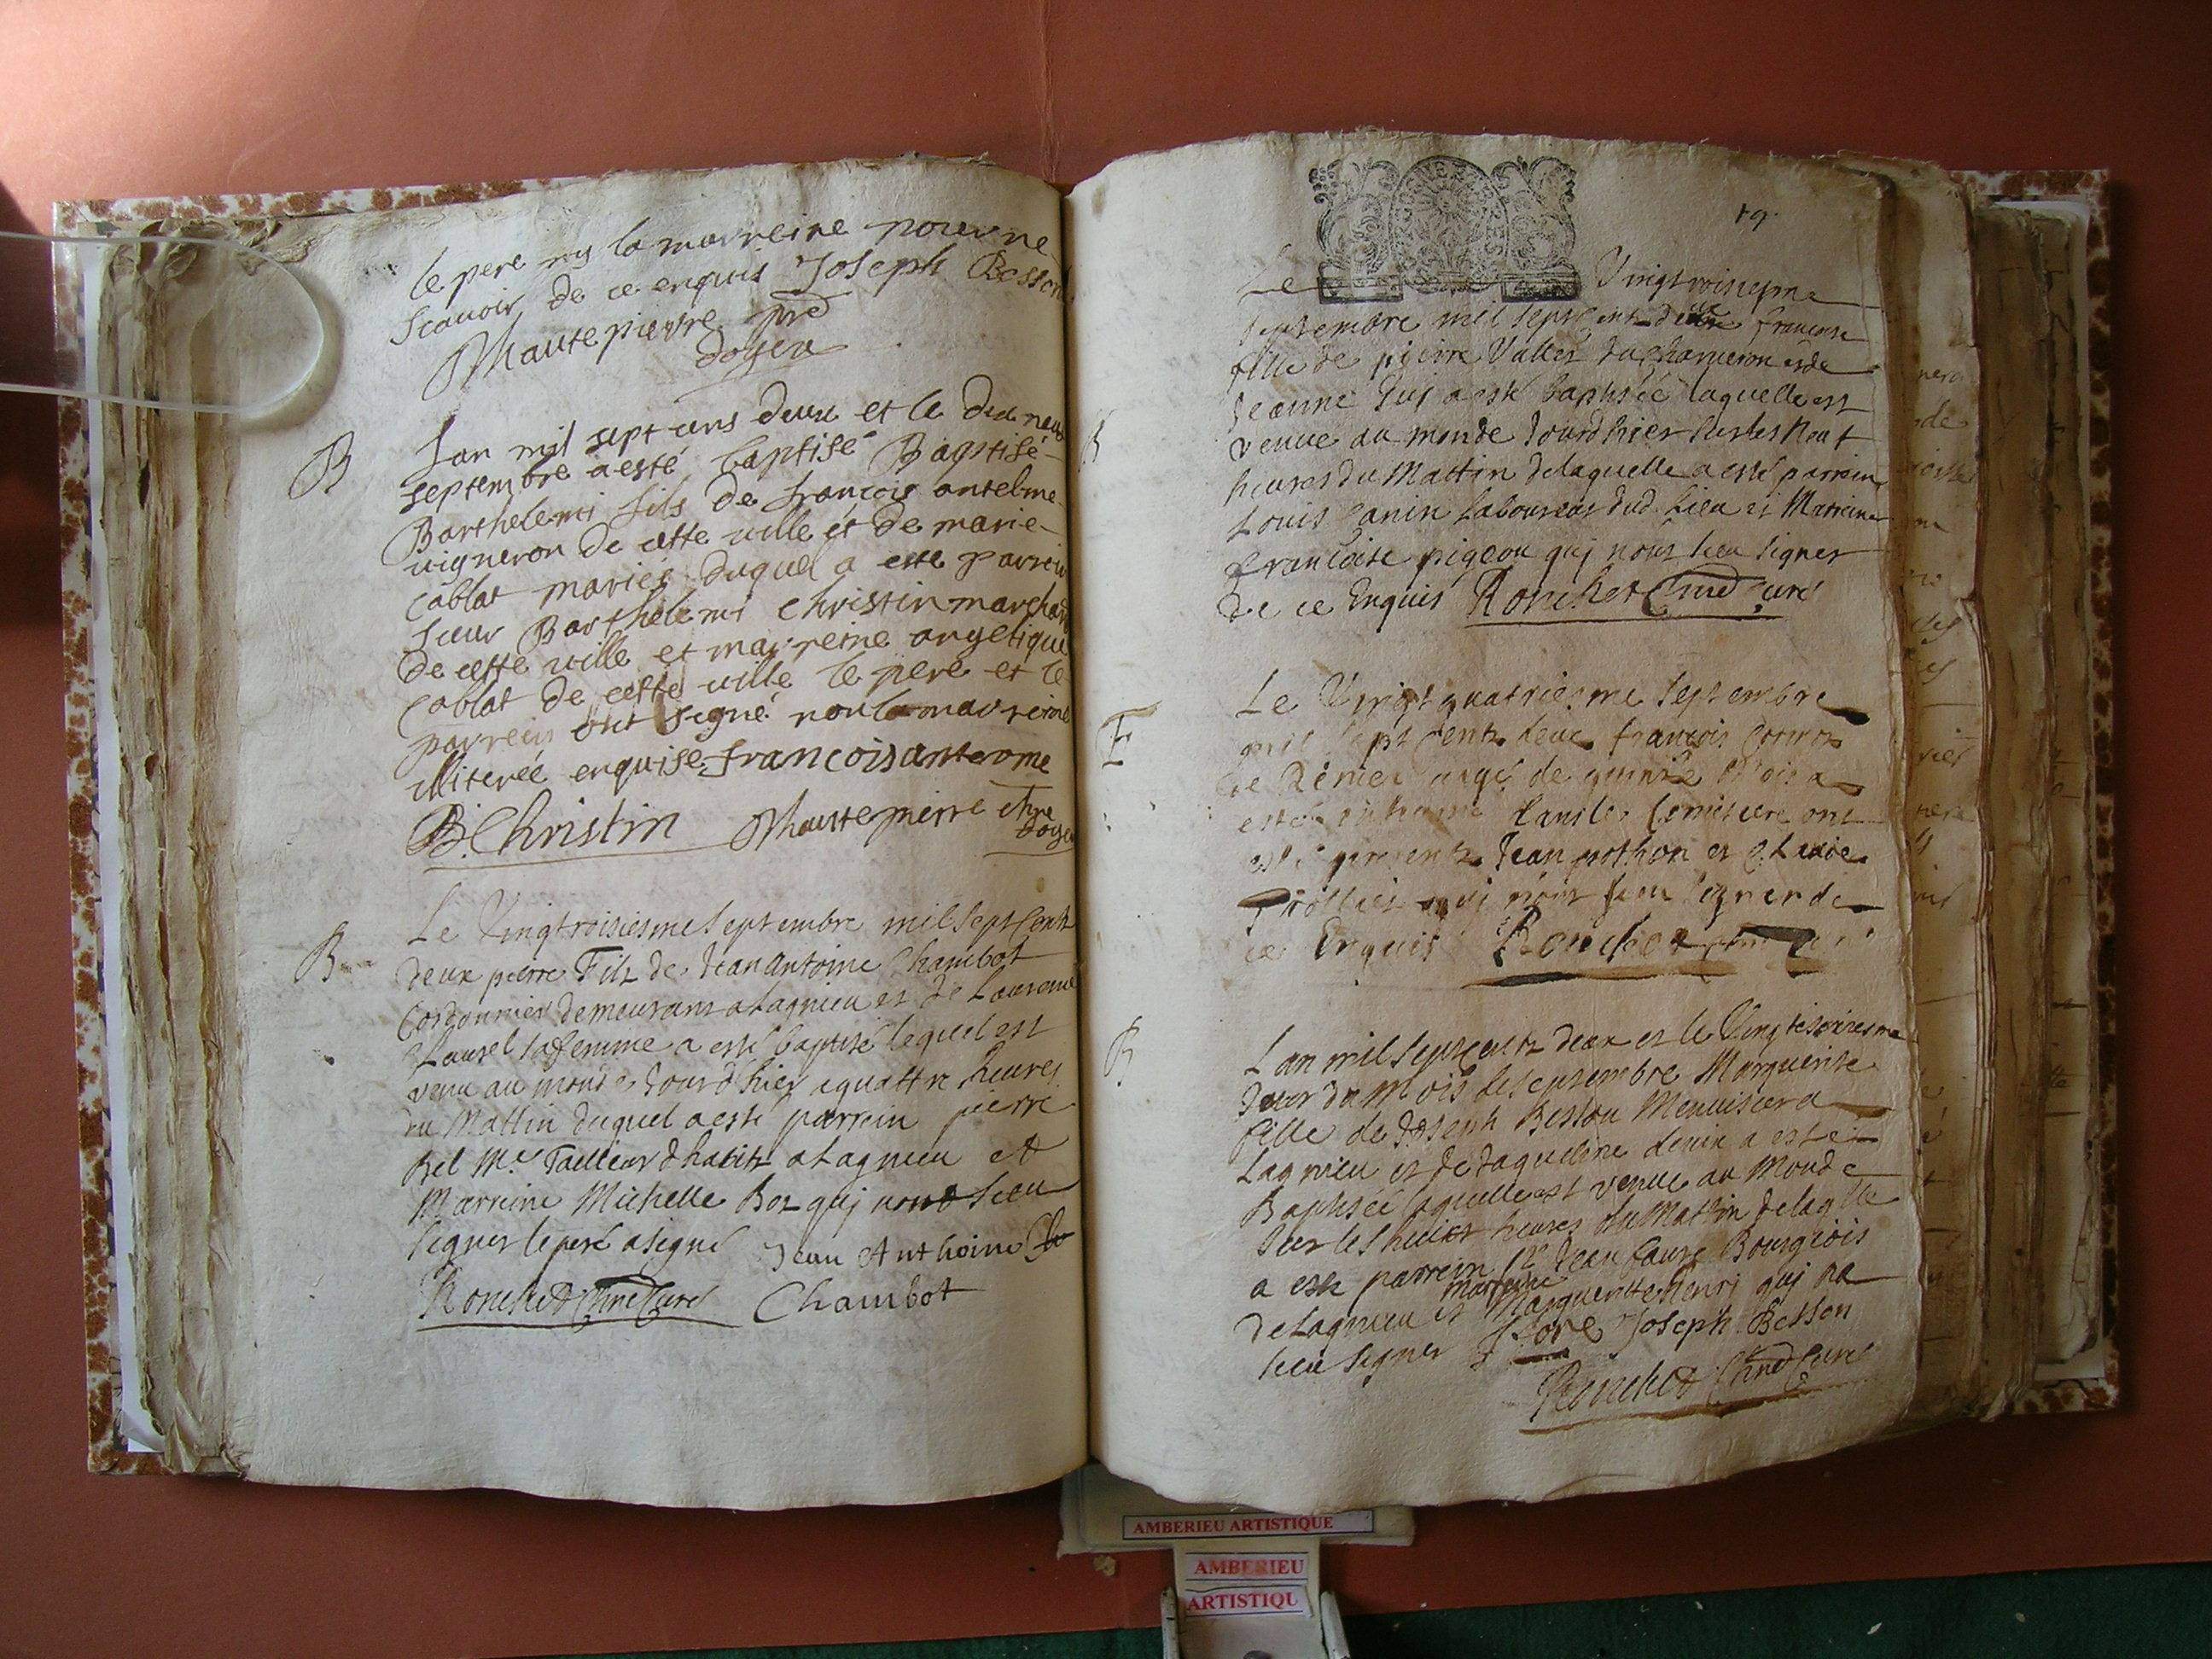 le pere ny la marreine pour ne
scavoir de ce enquis Joseph Besson
Mautepierre
doyen
B
Lan mil sept cens deux et le dix neuf
septembre a esté baptisé Baptisé
Barthelemi fils de françois antelme
vigneron de cette ville et de marie
Cablat mariés duquel a esté parrein
sieur Barthelemi Christin marchand
de cette ville et marreine angelique
Cablat de cette ville le pere et le
parrein ont signé non la marreine
illiterée enquise françois anterome
B. Christin Mautepierre
doyen
B
Le Vingtroisiesme septembre mil sept cents
deux pierre Filz de Jean Antoine Chambot
Cordonnier demeurant a Lagnieu et de
sa femme a esté baptisé lequel est
venu au monde Jourdhier a quattre heures
du Mattin duquel a esté parrein pierre
Bel Me Tailleur dhabitz a Lagnieu et
Marreine Michelle Boz quj nont sceu
signer le pere a signé Jean Anthoine
Ronchet Curé Chambot
19
Le Vingtroisiesme
septembre mil sept cents deux francoise
fille de pierre Vallet du Charveron et de
Jeanne a esté baptisée laquelle est
venue au monde Jourdhier sur les neuf
heures du Mattin delaquelle a esté parrein
Louis Janin Laboureur dud. Lieu et Marreine
francoise pigeon quj nont sceu signer
de ce Enquis Ronchet Curé
B
E
Le Vingt quatriesme septembre
mil sept cents deux francois
aagé de quinze Mois a
esté dans le Cemitiere ont
esté presents Jean pothon et
quj nont sceu signer de
ce Enquis Ronchet
B
Lan mil sept cents deux et le
Jour du Mois de septembre Marguerite
fille de Joseph Besson Menuisier a
Lagnieu et de Jaqueline a esté
Baptisée laquelle est venue au Monde
sur les huict heures du Mattin delaqlle
a esté parrein Sr Jean Faure Bourgeois
de Lagnieu et marreine Marguerite henri quj na
sceu signer Joseph Besson
Ronchet Curé
AMBERIEU ARTISTIQUE
AMBERIEU
ARTISTIQU